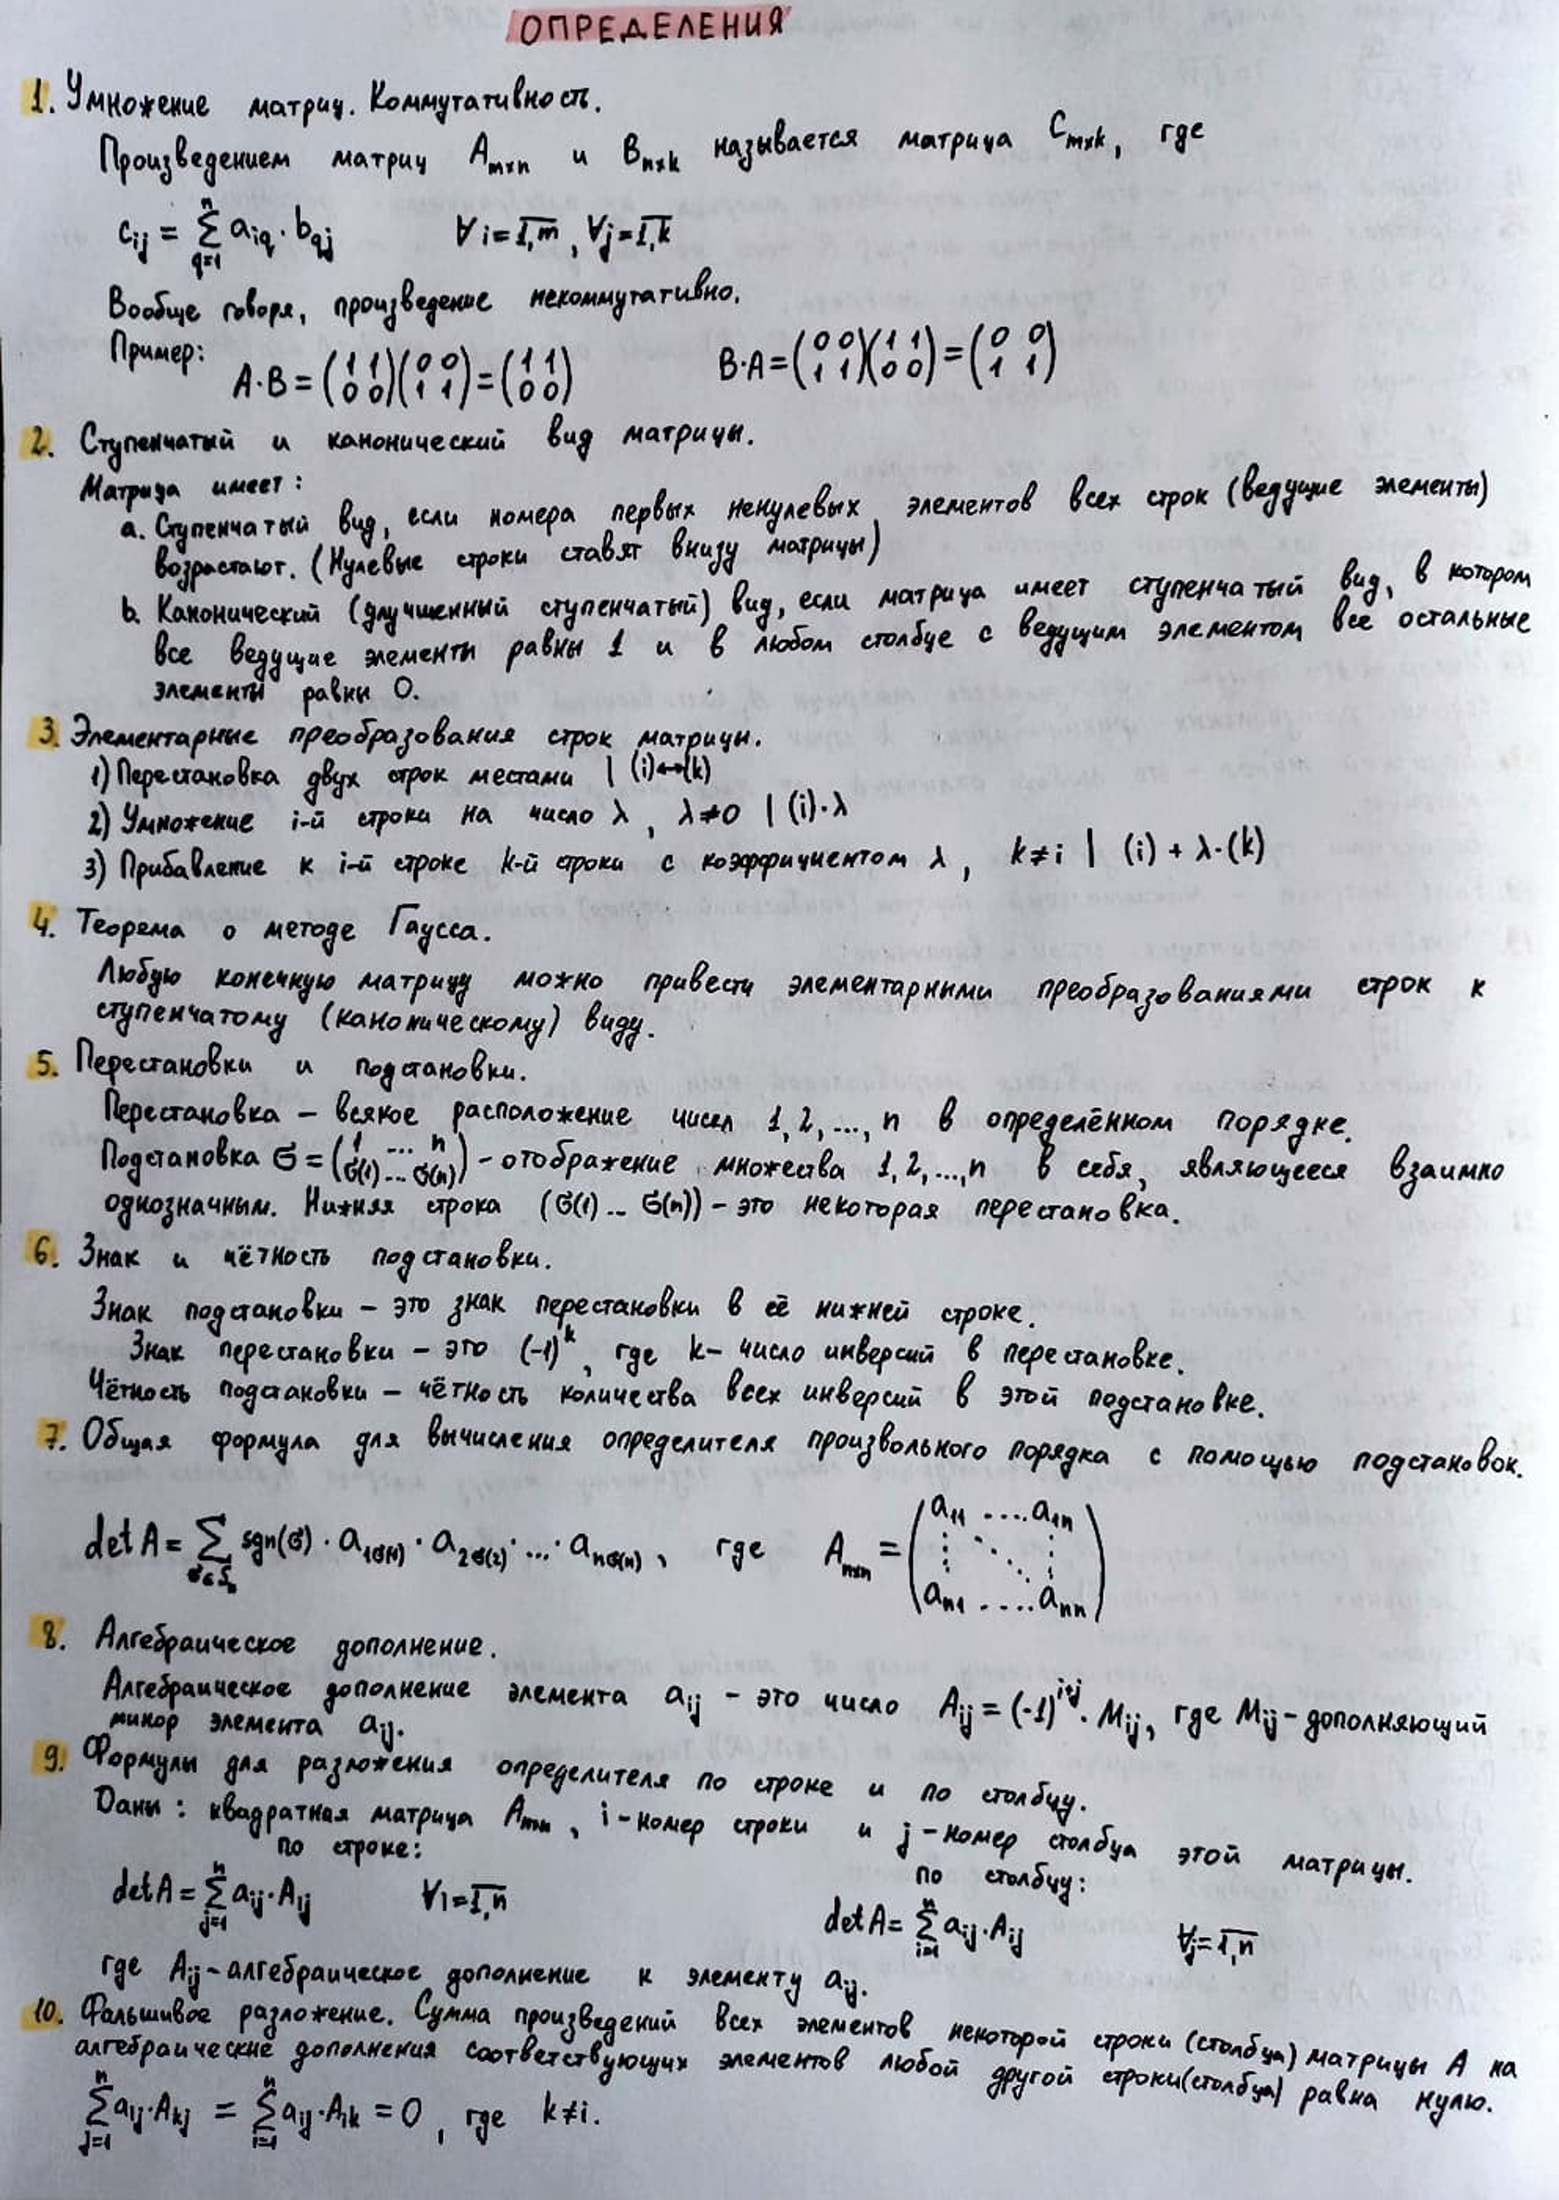 ОПРЕДЕЛЕНИЯ
1. Умножение матриц. Коммутативность.
Произведением матриц Aₘₓₙ и Bₙₓₖ называется матрица Cₘₓₖ, где
cᵢⱼ = ∑_{q=1}^{n} a_{iq} · b_{qj} ∀ i = \overline{1,m}, ∀j = \overline{1,k}
Вообще говоря, произведение некоммутативно.
Пример: A·B = (1 1; 0 0)(0 0; 1 1) = (1 1; 0 0) B·A = (0 0; 1 1)(1 1; 0 0) = (0 0; 1 1)
2. Ступенчатый и канонический вид матрицы.
Матрица имеет:
a. Ступенчатый вид, если номера первых ненулевых элементов всех строк (ведущие элементы)
возрастают. (Нулевые строки ставят внизу матрицы)
b. Канонический (улучшенный ступенчатый) вид, если матрица имеет ступенчатый вид, в котором
все ведущие элементы равны 1 и в любом столбце с ведущим элементом все остальные
элементы равны 0.
3. Элементарные преобразования строк матрицы.
1) Перестановка двух строк местами | (i)↔(k)
2) Умножение i-й строки на число λ, λ≠0 | (i)·λ
3) Прибавление к i-й строке k-й строки с коэффициентом λ, k≠i | (i) + λ·(k)
4. Теорема о методе Гаусса.
Любую конечную матрицу можно привести элементарными преобразованиями строк к
ступенчатому (каноническому) виду.
5. Перестановки и подстановки.
Перестановка – всякое расположение чисел 1, 2, ..., n в определённом порядке.
Подстановка σ = (1 ... n; σ(1) ... σ(n)) – отображение множества 1, 2, ..., n в себя, являющееся взаимно
однозначным. Нижняя строка (σ(1) ... σ(n)) – это некоторая перестановка.
6. Знак и чётность подстановки.
Знак подстановки – это знак перестановки в её нижней строке.
Знак перестановки – это (-1)^k, где k – число инверсий в перестановке.
Чётность подстановки – чётность количества всех инверсий в этой подстановке.
7. Общая формула для вычисления определителя произвольного порядка с помощью подстановок.
det A = ∑_{σ∈Sₙ} sgn(σ) · a_{1σ(1)} · a_{2σ(2)} · ... · a_{nσ(n)}, где Aₙₓₙ = (a₁₁ .... a₁ₙ; ⋮ ⋱ ⋮; aₙ₁ .... aₙₙ)
8. Алгебраическое дополнение.
Алгебраическое дополнение элемента aᵢⱼ – это число Aᵢⱼ = (-1)^{i+j} · Mᵢⱼ, где Mᵢⱼ – дополняющий
минор элемента aᵢⱼ.
9. Формулы для разложения определителя по строке и по столбцу.
Даны: квадратная матрица Aₙₓₙ, i – номер строки и j – номер столбца этой матрицы.
по строке: по столбцу:
det A = ∑_{j=1}^{n} aᵢⱼ · Aᵢⱼ ∀i = \overline{1,n} det A = ∑_{i=1}^{n} aᵢⱼ · Aᵢⱼ ∀j = \overline{1,n}
где Aᵢⱼ – алгебраическое дополнение к элементу aᵢⱼ.
10. Фальшивое разложение. Сумма произведений всех элементов некоторой строки (столбца) матрицы A на
алгебраические дополнения соответствующих элементов любой другой строки(столбца) равна нулю.
∑_{j=1}^{n} aᵢⱼ · Aₖⱼ = ∑_{i=1}^{n} aᵢⱼ · Aᵢₖ = 0, где k≠i.